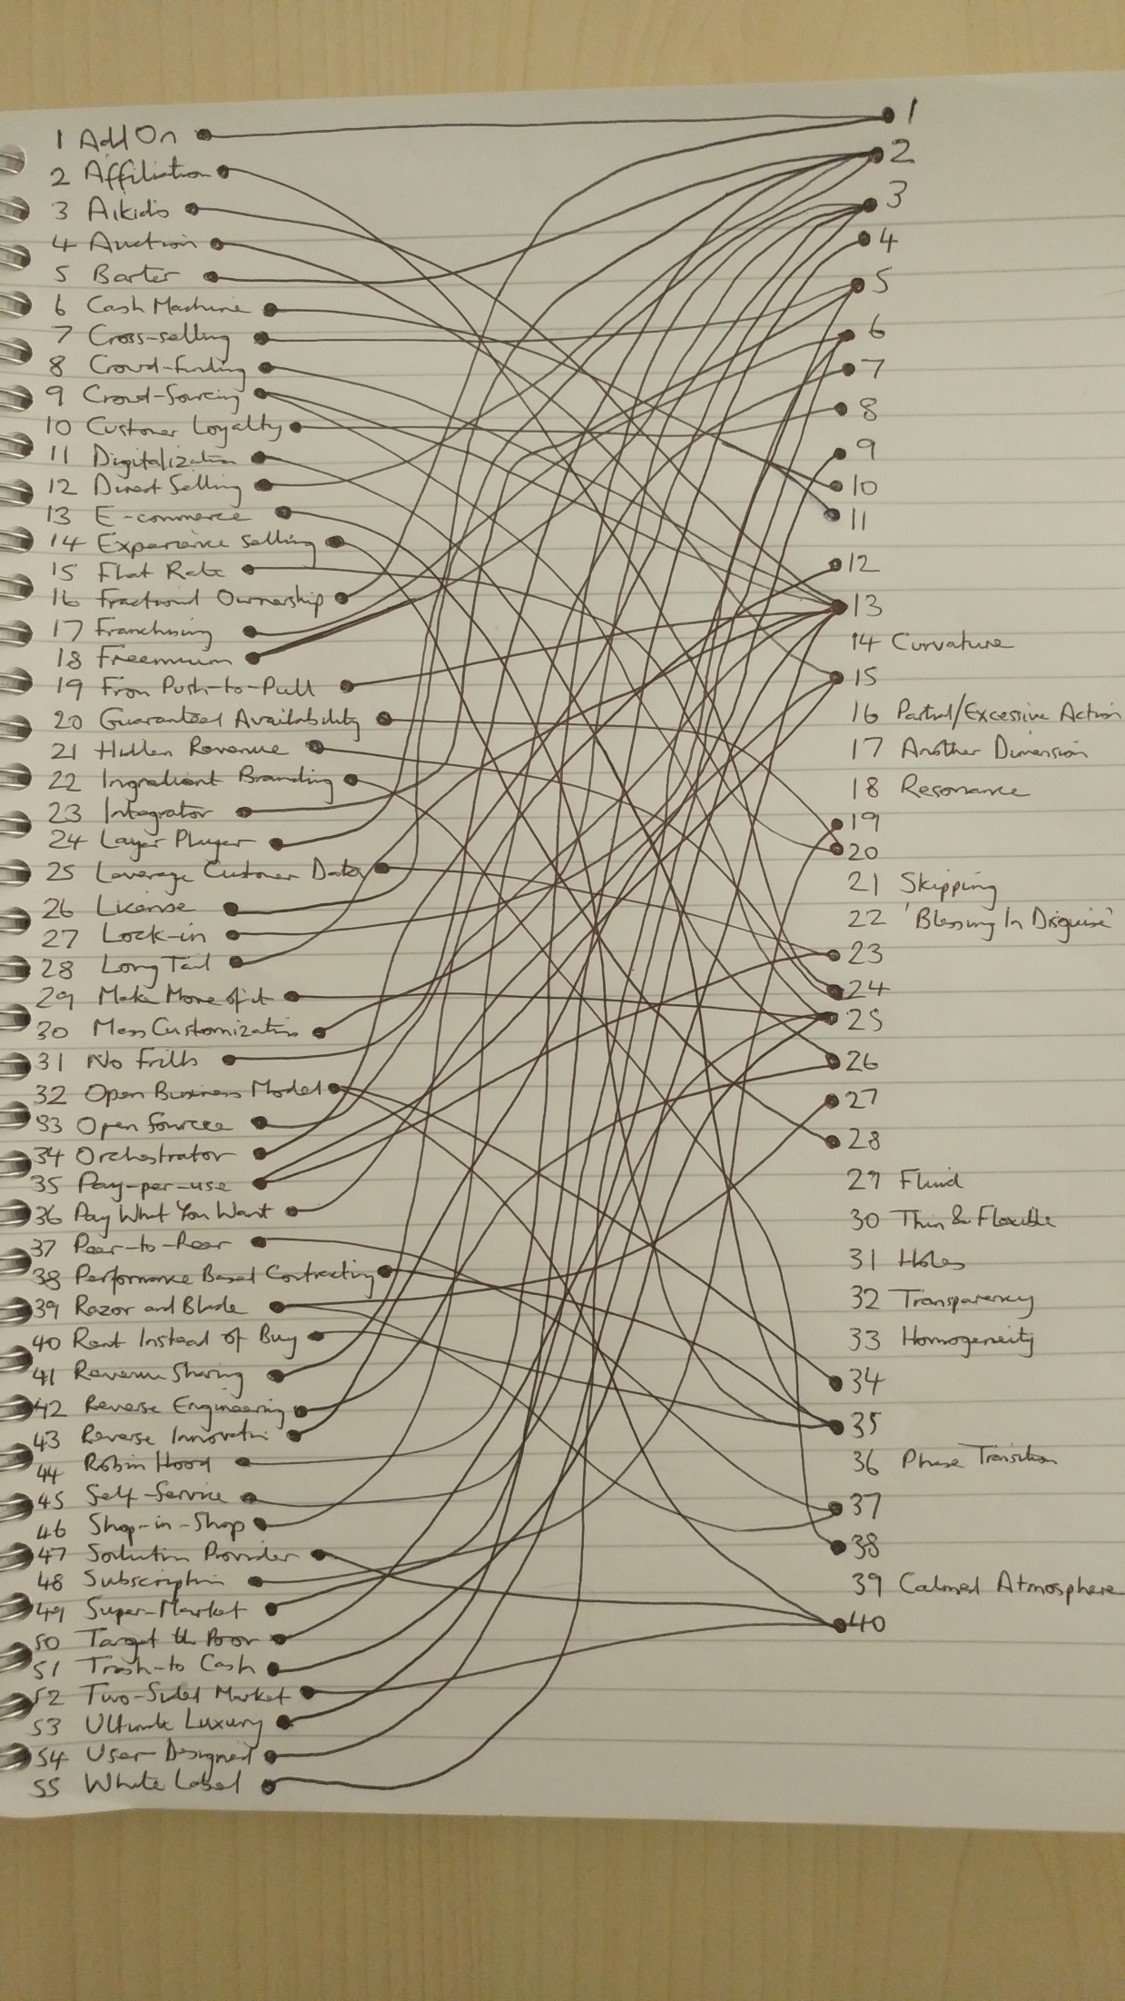 1 Add On
2 Affiliation
3 Aikido
4 Auction
5 Barter
6 Cash Machine
7 Cross-selling
8 Crowd-funding
9 Crowd-Sourcing
10 Customer Loyalty
11 Digitalization
12 Direct Selling
13 E-commerce
14 Experience Selling
15 Flat Rate
16 Fractional Ownership
17 Franchising
18 Freemium
19 From Push-to-Pull
20 Guaranteed Availability
21 Hidden Revenue
22 Ingredient Branding
23 Integrator
24 Layer Player
25 Leverage Customer Data
26 License
27 Lock-in
28 Long Tail
29 Make More of it
30 Mass Customization
31 No Frills
32 Open Business Model
33 Open Source
34 Orchestrator
35 Pay-per-use
36 Pay What You Want
37 Peer-to-Peer
38 Performance Based Contracting
39 Razor and Blade
40 Rent Instead of Buy
41 Revenue Sharing
42 Reverse Engineering
43 Reverse Innovation
44 Robin Hood
45 Self-Service
46 Shop-in-Shop
47 Solution Provider
48 Subscription
49 Super-Market
50 Target the Poor
51 Trash-to Cash
52 Two-Sided Market
53 Ultimate Luxury
54 User-Designed
55 White Label
1
2
3
4
5
6
7
8
9
10
11
12
13
14 Curvature
15
16 Partial/Excessive Action
17 Another Dimension
18 Resonance
19
20
21 Skipping
22 'Blessing In Disguise'
23
24
25
26
27
28
29 Fluid
30 Thin & Flexible
31 Holes
32 Transparency
33 Homogeneity
34
35
36 Phase Transition
37
38
39 Calmed Atmosphere
40